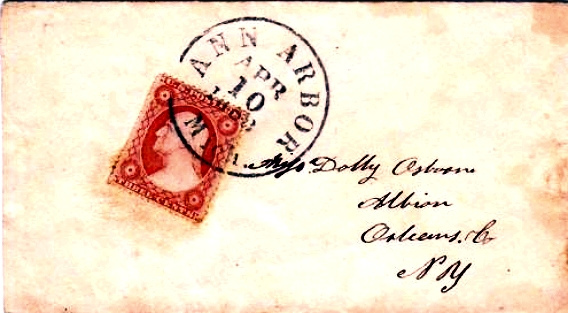 ANN ARBOR
APR
10
MICH.
Miss Dolly Osborne
Albion
Orleans. Co
NY